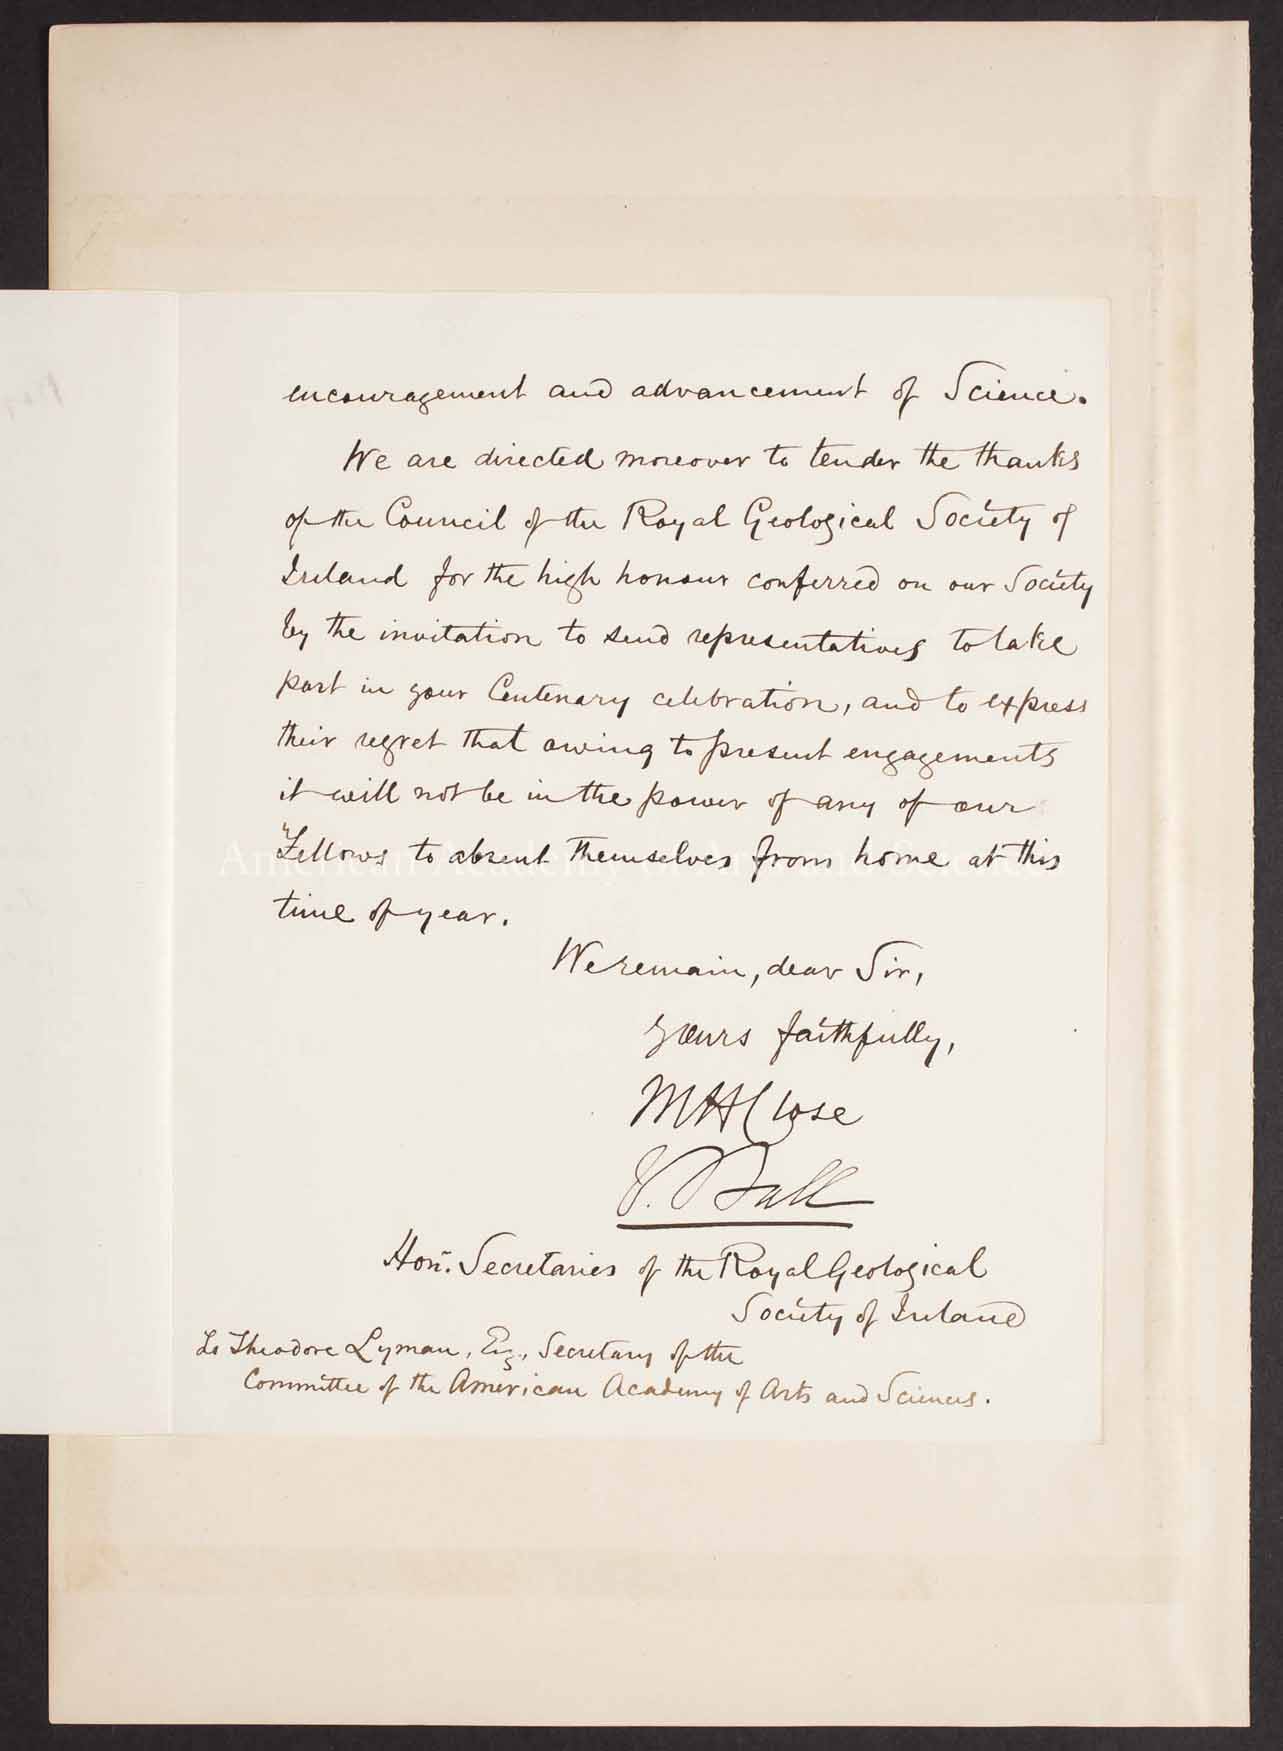 encouragement and advancement of Science.
We are directed moreover to tender the thanks
of the Council of the Royal Geological Society of
Ireland for the high honour conferred on our Society
by the invitation to send representatives to take
part in your Centenary celebration, and to express
their regret that owing to present engagements
it will not be in the power of any of our
Fellows to absent themselves from home at this
American Academy of Arts and Sciences
time of year.
We remain, dear Sir,
Yours faithfully,
M H Close
V. Ball
Hon. Secretaries of the Royal Geological
Society of Ireland
To Theodore Lyman, Esq., Secretary of the
Committee of the American Academy of Arts and Sciences.